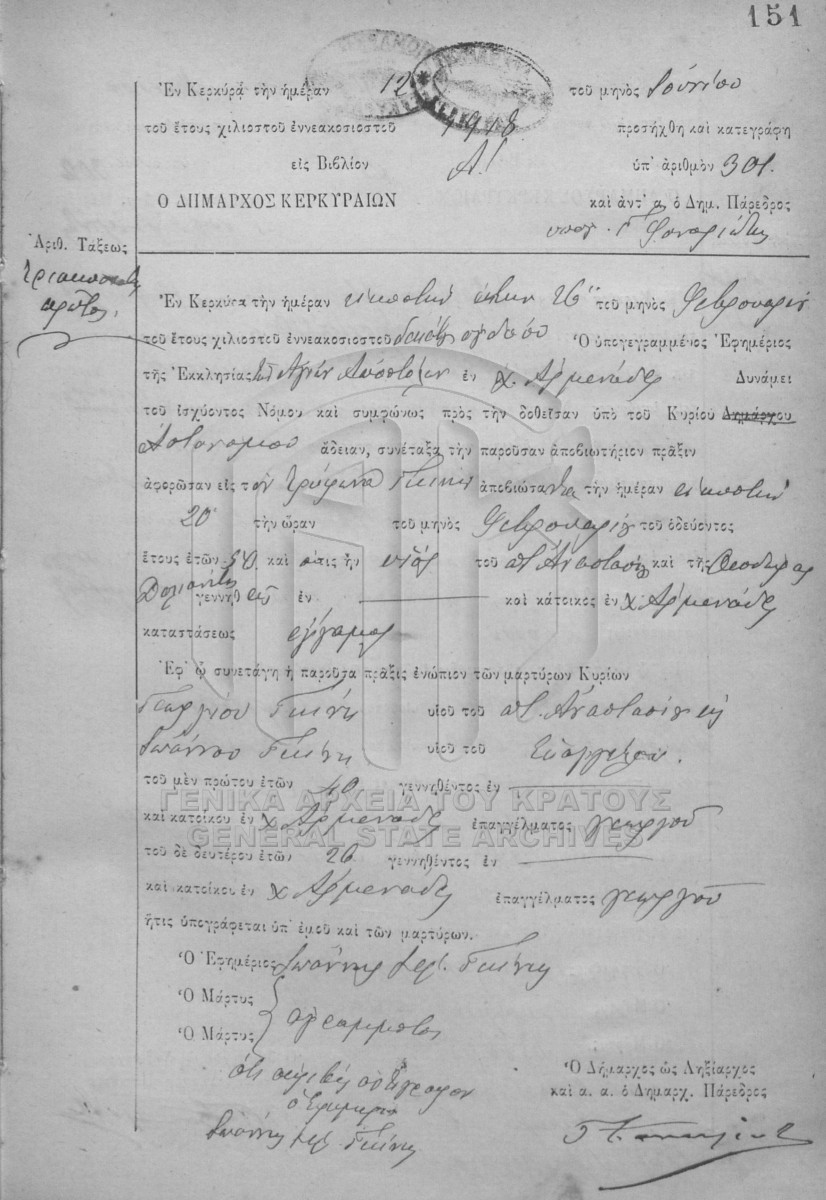 151
Ἐν Κερκύρᾳ τὴν ἡμέραν 12 τοῦ μηνὸς Ἰουνίου
τοῦ ἔτους χιλιοστοῦ ἐννεακοσιοστοῦ 1918 προσήχθη καὶ κατεγράφη
εἰς Βιβλίον Α! ὑπ' ἀριθμὸν 301.
Ὁ ΔΗΜΑΡΧΟΣ ΚΕΡΚΥΡΑΙΩΝ καὶ ἀντ' α. ὁ Δημ. Πάρεδρος
Ἀριθ. Τάξεως
Ἐν Κερκύρᾳ τὴν ἡμέραν εἰκοστὴν ἕκτην 26 τοῦ μηνὸς Φεβρουαρίου
τοῦ ἔτους χιλιοστοῦ ἐννεακοσιοστοῦ δεκάτου ὀγδόου Ὁ ὑπογεγραμμένος Ἐφημέριος
τῆς Ἐκκλησίας τῶν Ἁγίων Ἀποστόλων ἐν χ. Ἀρμενάδες Δυνάμει
τοῦ ἰσχύοντος Νόμου καὶ συμφώνως πρὸς τὴν δοθεῖσαν ὑπὸ τοῦ Κυρίου Δημάρχου
Ἀστυνόμου ἄδειαν, συνέταξα τὴν παροῦσαν ἀποβιωτήριον πρᾶξιν
ἀφορῶσαν εἰς τὸν Τρύφωνα Γκίνην ἀποβιώσαντα τὴν ἡμέραν εἰκοστὴν
20 τὴν ὥραν τοῦ μηνὸς Φεβρουαρίου τοῦ ὁδεύοντος
ἔτους ἐτῶν καὶ ὅστις ἦν υἱὸς τοῦ Ἀναστασίου καὶ τῆς Θεοδώρας
γεννηθεὶς ἐν καὶ κάτοικος ἐν χ Ἀρμενάδες
καταστάσεως ἔγγαμος
Ἐφ' ᾧ συνετάγη ἡ παροῦσα πρᾶξις ἐνώπιον τῶν μαρτύρων Κυρίων
Γεωργίου Γκίνη υἱοῦ τοῦ Ἀναστασίου καὶ
Ἰωάννου Γκίνη υἱοῦ τοῦ Εὐαγγέλου.
τοῦ μὲν πρώτου ἐτῶν 40 γεννηθέντος ἐν
ΓΕΝΙΚΑ ΑΡΧΕΙΑ ΤΟΥ ΚΡΑΤΟΥΣ
καὶ κατοίκου ἐν χ Ἀρμενάδες ἐπαγγέλματος γεωργοῦ
GENERAL STATE ARCHIVES
τοῦ δὲ δευτέρου ἐτῶν 26 γεννηθέντος ἐν
καὶ κατοίκου ἐν χ Ἀρμενάδες ἐπαγγέλματος γεωργοῦ
ἥτις ὑπογράφεται ὑπ' ἐμοῦ καὶ τῶν μαρτύρων.
Ὁ Ἐφημέριος Ἰωάννης ἱερ. Γκίνης
Ὁ Μάρτυς
ἀγράμματοι
Ὁ Μάρτυς
ὅτι ἀκριβὲς ἀντίγραφον
ὁ Ἐφημέριος
Ἰωάννης ἱερ. Γκίνης
Ὁ Δήμαρχος ὡς Ληξίαρχος
καὶ α. α. ὁ Δημαρχ. Πάρεδρος